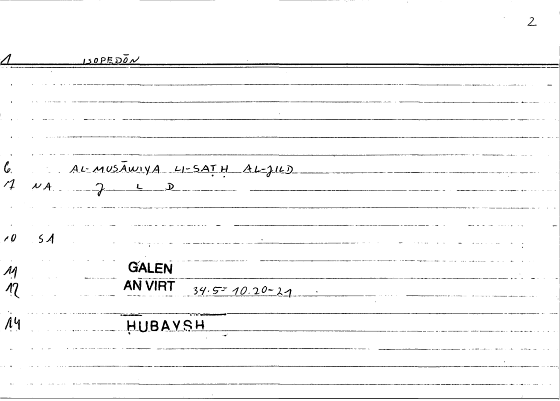 2
1 ISOPEDŌN
6 AL-MUSĀWIYA LI-SAṬḤ AL-JILD
7 NA J L D
10 SA
11 GALEN
12 AN VIRT 34.5= 10.20-21
14 ḤUBAYSH